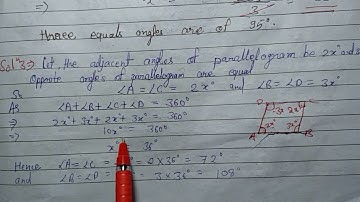 =)
3
Hence equals angles are of 95°.
Sol"3 => Let the adjacent angles of parallelogram be 2x° and
Opposite angles of parallelogram are equal
So ∠A = ∠C = 2x° and ∠B = ∠D = 3x°
As ∠A + ∠B + ∠C + ∠D = 360°
=> 2x° + 3x° + 2x° + 3x° = 360°
=> 10x° = 360°
=> x° 36°
Hence ∠A = ∠C = 2×36° = 72°
and ∠B = ∠D = 3×36° = 108°
D C
3x° 2x°
2x° 3x°
A B